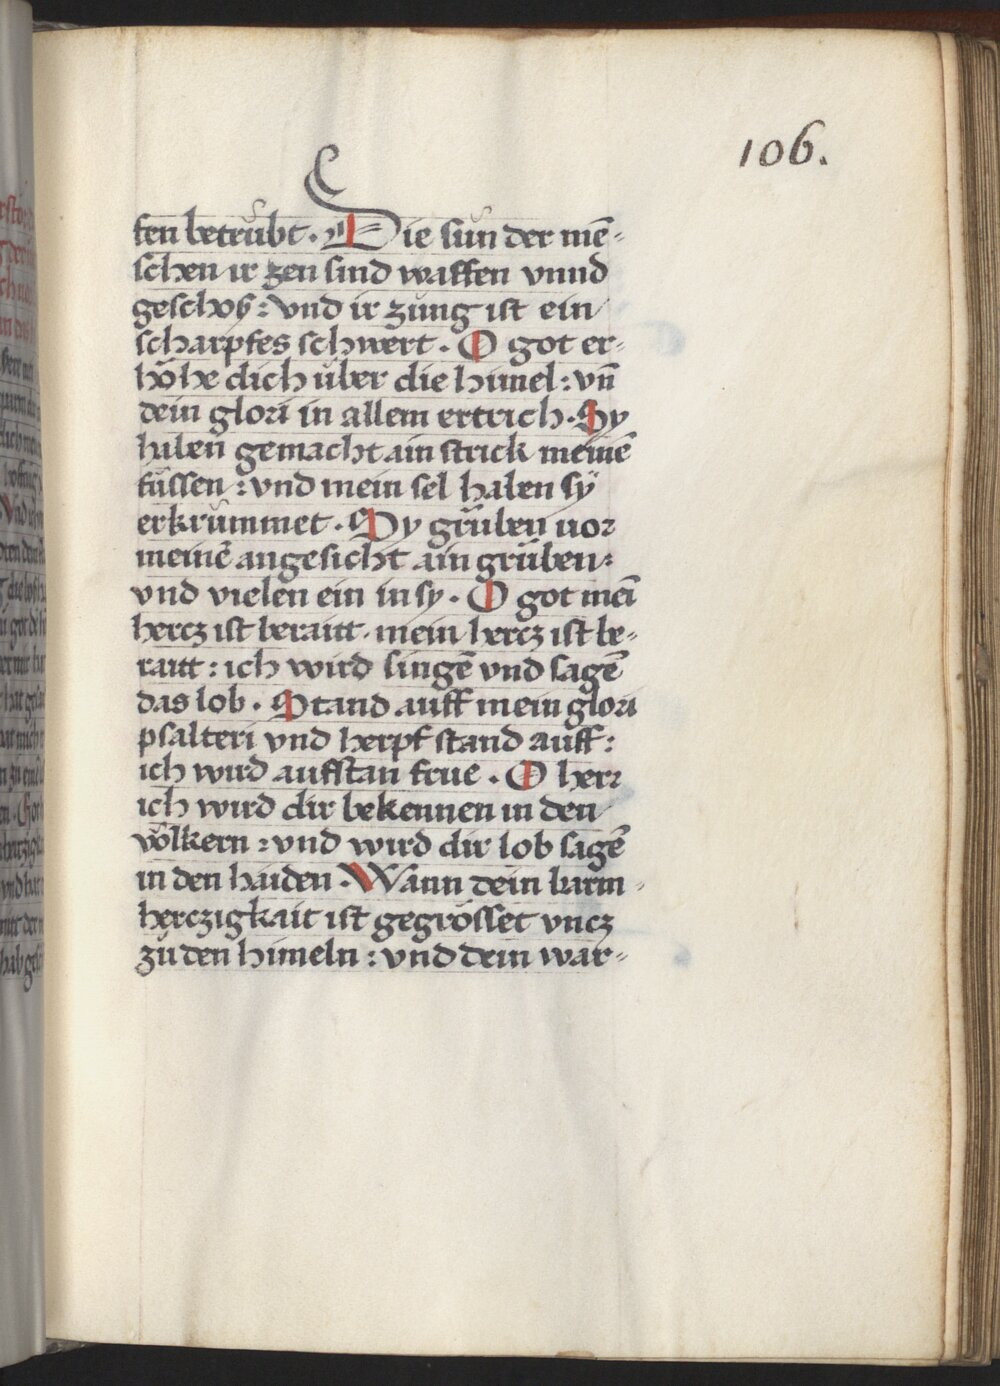 106.
fen betrübt. Die sün der mē-
schen ir zen sind waffen vnnd
geschoß: vnd ir zung ist ein
scharpfes schwert. O got er-
höhe dich über die himel: vn̄
dein glori in allem ertrich. Sy
haben gemacht ain strick meinē
füssen: vnd mein sel haben sÿ
erkrümmet. Sy grüben vor
meinē angesicht ain grüben:
vnd vielen ein in sy. O got meī
hercz ist beraitt. mein hercz ist be-
raitt: ich wird singē vnd sagē
das lob. Stand auff mein glori
psalteri vnd herpf stand auff:
ich wird aufstan frue. O herr
ich wird dir bekennen in den
völkern: vnd wird dir lob sagē
in den haiden. Wann dein barm-
herczigkait ist gegrösset vncz
zů den himeln: vnd dein war-